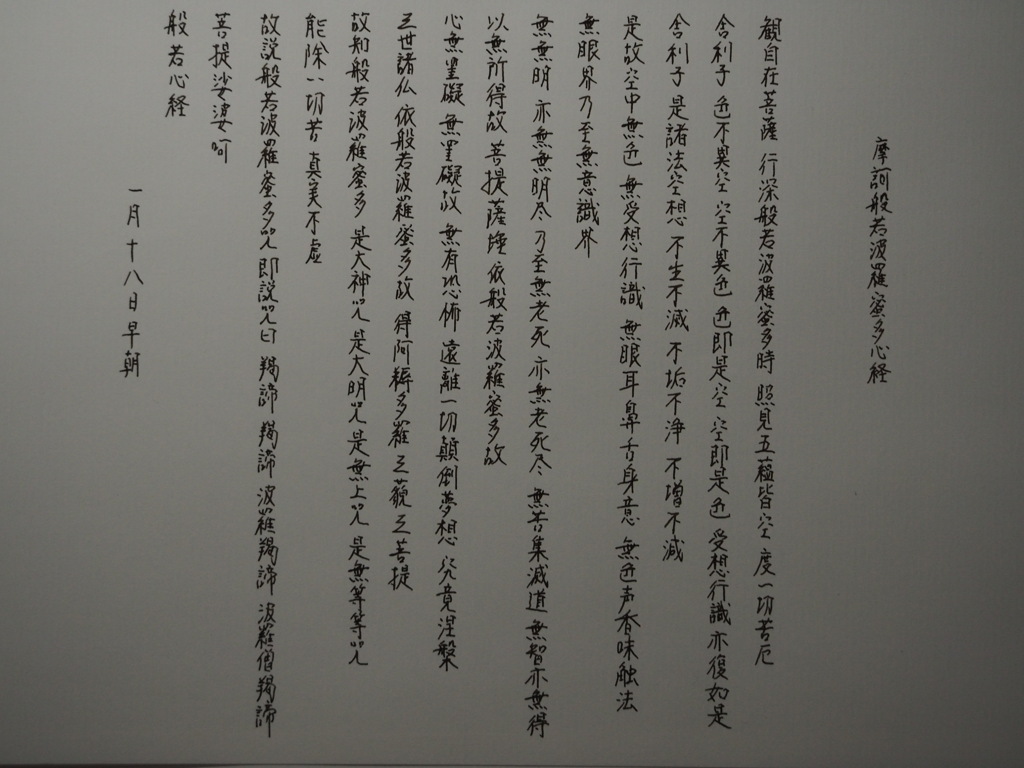 摩訶般若波羅蜜多心経
観自在菩薩 行深般若波羅蜜多時 照見五蘊皆空 度一切苦厄
舎利子 色不異空 空不異色 色即是空 空即是色 受想行識 亦復如是
舎利子 是諸法空想 不生不滅 不垢不浄 不増不減
是故空中無色 無受想行識 無眼耳鼻舌身意 無色声香味触法
無眼界乃至無意識界
無無明 亦無無明尽 乃至無老死 亦無老死尽 無苦集滅道 無智亦無得
以無所得故 菩提薩埵 依般若波羅蜜多故
心無罣礙 無罣礙故 無有恐怖 遠離一切顛倒夢想 究竟涅槃
三世諸仏 依般若波羅蜜多故 得阿耨多羅 三藐三菩提
故知般若波羅蜜多 是大神呪 是大明呪 是無上呪 是無等等呪
能除一切苦 真実不虚
故説般若波羅蜜多呪 即説呪曰 羯諦 羯諦 波羅羯諦 波羅僧羯諦
菩提娑婆呵
般若心経
一月十八日早朝